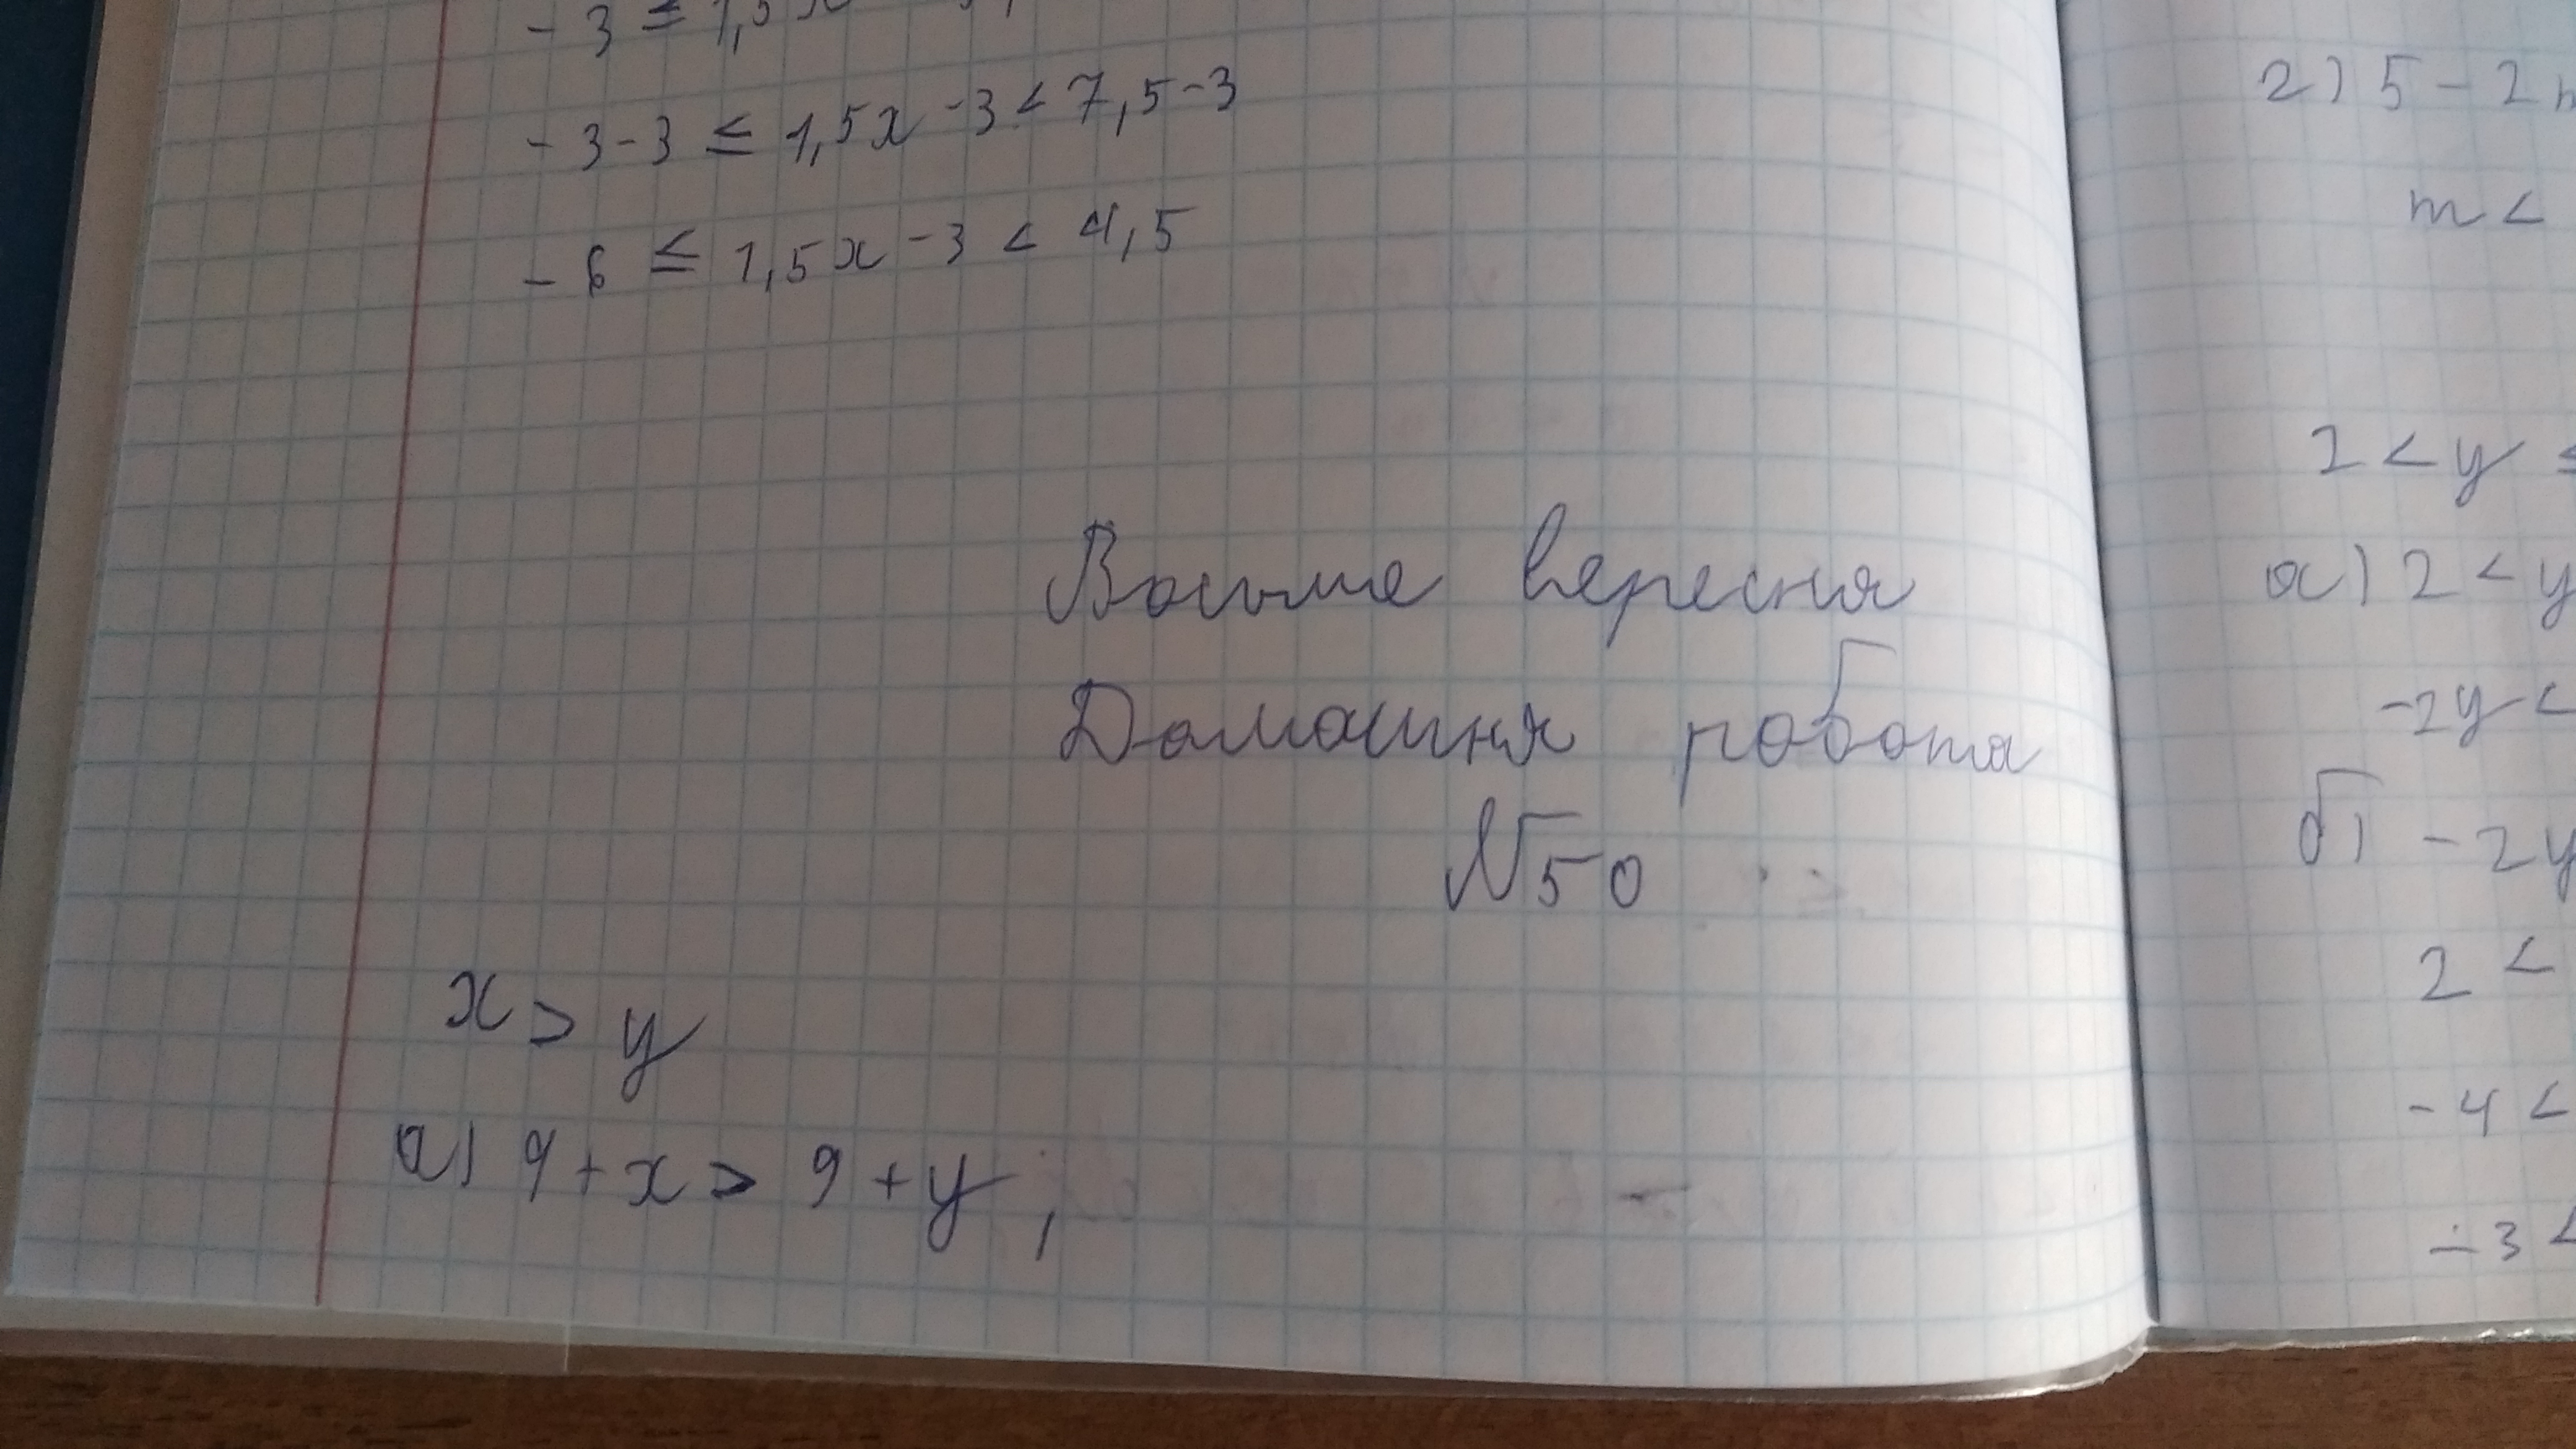 - 3 ≤ 1,5x
- 3 - 3 ≤ 1,5x - 3 < 7,5 - 3
- 6 ≤ 1,5x - 3 < 4,5
Восьме вересня
Домашня робота
№50
x > y
а) 9 + x > 9 + y;
2) 5 - 2
m <
2 < y ≤
а) 2 < y
-2y <
б) - 2y
2 <
- 4 <
- 3 <